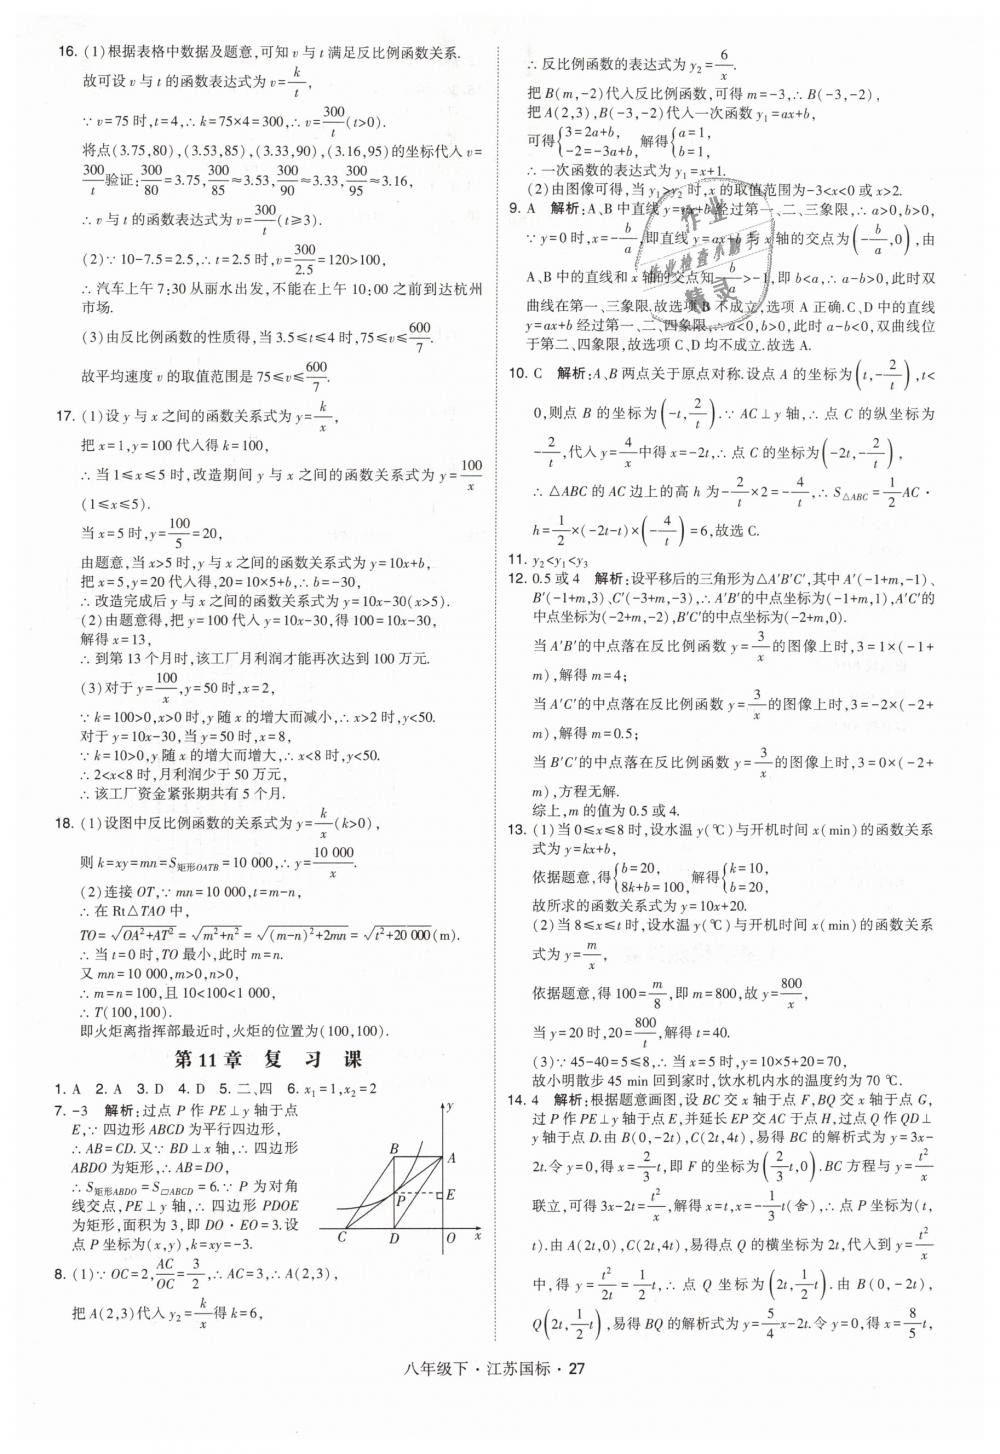 16. (1)根据表格中数据及题意,可知 v 与 t 满足反比例函数关系.
故可设 v 与 t 的函数表达式为 v=k/t,
∵ v=75 时,t=4,∴ k=75×4=300,∴ v=300/t(t>0).
将点(3.75,80),(3.53,85),(3.33,90),(3.16,95)的坐标代入 v=
300/t验证:300/80=3.75,300/85≈3.53,300/90≈3.33,300/95≈3.16,
∴ v 与 t 的函数表达式为 v=300/t(t≥3).
(2)∵ 10-7.5=2.5,∴ t=2.5 时,v=300/2.5=120>100,
∴ 汽车上午 7:30 从丽水出发,不能在上午 10:00 之前到达杭州
市场.
(3)由反比例函数的性质得,当 3.5≤t≤4 时,75≤v≤600/7.
故平均速度 v 的取值范围是 75≤v≤600/7.
17. (1)设 y 与 x 之间的函数关系式为 y=k/x,
把 x=1,y=100 代入得 k=100,
∴ 当 1≤x≤5 时,改造期间 y 与 x 之间的函数关系式为 y=100/x
(1≤x≤5).
当 x=5 时,y=100/5=20,
由题意,当 x>5 时,y 与 x 之间的函数关系式为 y=10x+b,
把 x=5,y=20 代入得,20=10×5+b,∴ b=-30,
∴ 改造完成后 y 与 x 之间的函数关系式为 y=10x-30(x>5).
(2)由题意得,把 y=100 代入 y=10x-30,得 100=10x-30,
解得 x=13,
∴ 到第 13 个月时,该工厂月利润才能再次达到 100 万元.
(3)对于 y=100/x,y=50 时,x=2,
∵ k=100>0,x>0 时,y 随 x 的增大而减小,∴ x>2 时,y<50.
对于 y=10x-30,当 y=50 时,x=8,
∵ k=10>0,y 随 x 的增大而增大,∴ x<8 时,y<50.
∴ 2<x<8 时,月利润少于 50 万元,
∴ 该工厂资金紧张期共有 5 个月.
18. (1)设图中反比例函数的关系式为 y=k/x(k>0),
则 k=xy=mn=S矩形OATB=10 000,∴ y=10 000/x.
(2)连接 OT,∵ mn=10 000,t=m-n,
∴ 在 Rt△TAO 中,
TO=√(OA²+AT²)=√(m²+n²)=√((m-n)²+2mn)=√(t²+20 000)(m).
∴ 当 t=0 时,TO 最小,此时 m=n.
又 mn=10 000,m>0,n>0,
∴ m=n=100,且 10<100<1 000,
∴ T(100,100).
即火炬离指挥部最近时,火炬的位置为(100,100).
第 11 章 复 习 课
1. A 2. A 3. D 4. D 5. 二、四 6. x₁=1,x₂=2
7. -3 解析:过点 P 作 PE⊥y 轴于点
E,∵ 四边形 ABCD 为平行四边形,
∴ AB=CD.又∵ BD⊥x 轴,∴ 四边形
ABDO 为矩形,∴ AB=DO,
∴ S矩形ABDO=S▱ABCD=6.∵ P 为对角
线交点,PE⊥y 轴,∴ 四边形 PDOE
为矩形,面积为 3,即 DO·EO=3.设
点 P 坐标为(x,y),k=xy=-3.
y
B A
P E
C D O x
8. (1)∵ OC=2,AC/OC=3/2,∴ AC=3,∴ A(2,3),
把 A(2,3)代入 y₂=k/x得 k=6,
∴ 反比例函数的表达式为 y₂=6/x.
把 B(m,-2)代入反比例函数,可得 m=-3,∴ B(-3,-2),
把 A(2,3),B(-3,-2)代入一次函数 y₁=ax+b,
可得{3=2a+b, -2=-3a+b, 解得{a=1, b=1,
∴ 一次函数的表达式为 y₁=x+1.
(2)由图像可得,当 y₁>y₂ 时,x 的取值范围为-3<x<0 或 x>2.
9. A 解析:A、B 中直线 y=ax+b 经过第一、二、三象限,∴ a>0,b>0,
∵ y=0 时,x=-b/a,即直线 y=ax+b 与 x 轴的交点为(-b/a,0),由
A、B 中的直线和 x 轴的交点知-b/a>-1,即 b<a,∴ a-b>0,此时双
曲线在第一、三象限.故选项 B 不成立,选项 A 正确.C、D 中的直线
y=ax+b 经过第一、二、四象限,∴ a<0,b>0,此时 a-b<0,双曲线位
于第二、四象限,故选项 C、D 均不成立.故选 A.
10. C 解析:A、B 两点关于原点对称.设点 A 的坐标为(t,-2/t),t<
0,则点 B 的坐标为(-t,2/t).∵ AC⊥y 轴,∴ 点 C 的纵坐标为
-2/t,代入 y=4/x中得 x=-2t,∴ 点 C 的坐标为(-2t,-2/t),
∴ △ABC 的 AC 边上的高 h 为-2/t×2=-4/t,∴ S△ABC=1/2AC·
h=1/2×(-2t-t)×(-4/t)=6,故选 C.
11. y₂<y₁<y₃
12. 0.5 或 4 解析:设平移后的三角形为△A′B′C′,其中 A′(-1+m,-1)、
B′(-1+m,3)、C′(-3+m,-3),∴ A′B′的中点坐标为(-1+m,1),A′C′的
中点坐标为(-2+m,-2),B′C′的中点坐标为(-2+m,0).
当 A′B′的中点落在反比例函数 y=3/x的图像上时,3=1×(-1+
m),解得 m=4;
当 A′C′的中点落在反比例函数 y=3/x的图像上时,3=-2×(-2+
m),解得 m=0.5;
当 B′C′的中点落在反比例函数 y=3/x的图像上时,3=0×(-2+
m),方程无解.
综上,m 的值为 0.5 或 4.
13. (1)当 0≤x≤8 时,设水温 y(℃)与开机时间 x(min)的函数关系
式为 y=kx+b,
依据题意,得{b=20, 8k+b=100, 解得{k=10, b=20,
故所求的函数关系式为 y=10x+20.
(2)当 8≤x≤t 时,设水温 y(℃)与开机时间 x(min)的函数关系
式为 y=m/x,
依据题意,得 100=m/8,即 m=800,故 y=800/x,
当 y=20 时,20=800/t,解得 t=40.
(3)∵ 45-40=5≤8,∴ 当 x=5 时,y=10×5+20=70,
故小明散步 45 min 回到家时,饮水机内水的温度约为 70 ℃.
14. 4 解析:根据题意画图,设 BC 交 x 轴于点 F,BQ 交 x 轴于点 G,
过 P 作 PE⊥y 轴于点 E,并延长 EP 交 AC 于点 H,过点 Q 作 QD⊥
y 轴于点 D.由 B(0,-2t),C(2t,4t),易得 BC 的解析式为 y=3x-
2t.令 y=0,得 x=2/3t,即 F 的坐标为(2/3t,0).BC 方程与 y=t²/x
联立,可得 3x-2t=t²/x,解得 x=t,x=-1/3t(舍),∴ 点 P 坐标为(t,
t).由 A(2t,0),C(2t,4t),易得点 Q 的横坐标为 2t,代入到 y=t²/x
中,得 y=t²/2t=1/2t,∴ 点 Q 坐标为(2t,1/2t).由 B(0,-2t),
Q(2t,1/2t),易得 BQ 的解析式为 y=5/4x-2t.令 y=0,得 x=8/5t,
作业
作业检查小助手
精灵
八年级下·江苏国标·27